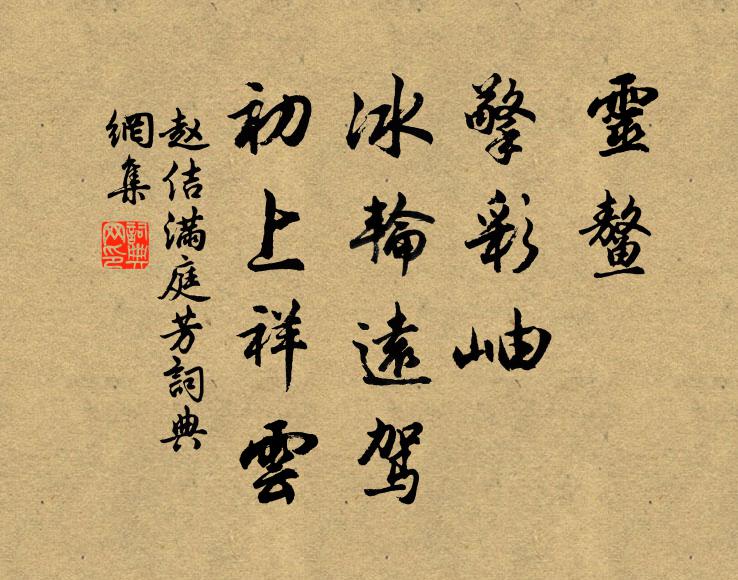 靈鰲
擎彩岫
冰輪遠駕
初上祥雲
赵佶满庭芳詞典
網集
詞典
网印